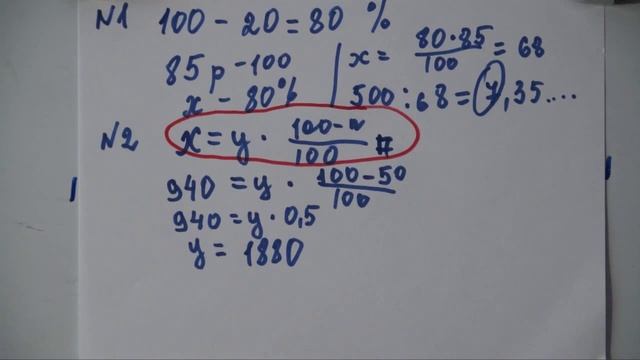 N1 100 - 20 = 80 %
85 р - 100
x - 80%
x = 80·85/100 = 68
500 : 68 = 7,35....
N2 x = y · 100-n/100
940 = y · 100-50/100
940 = y · 0,5
y = 1880